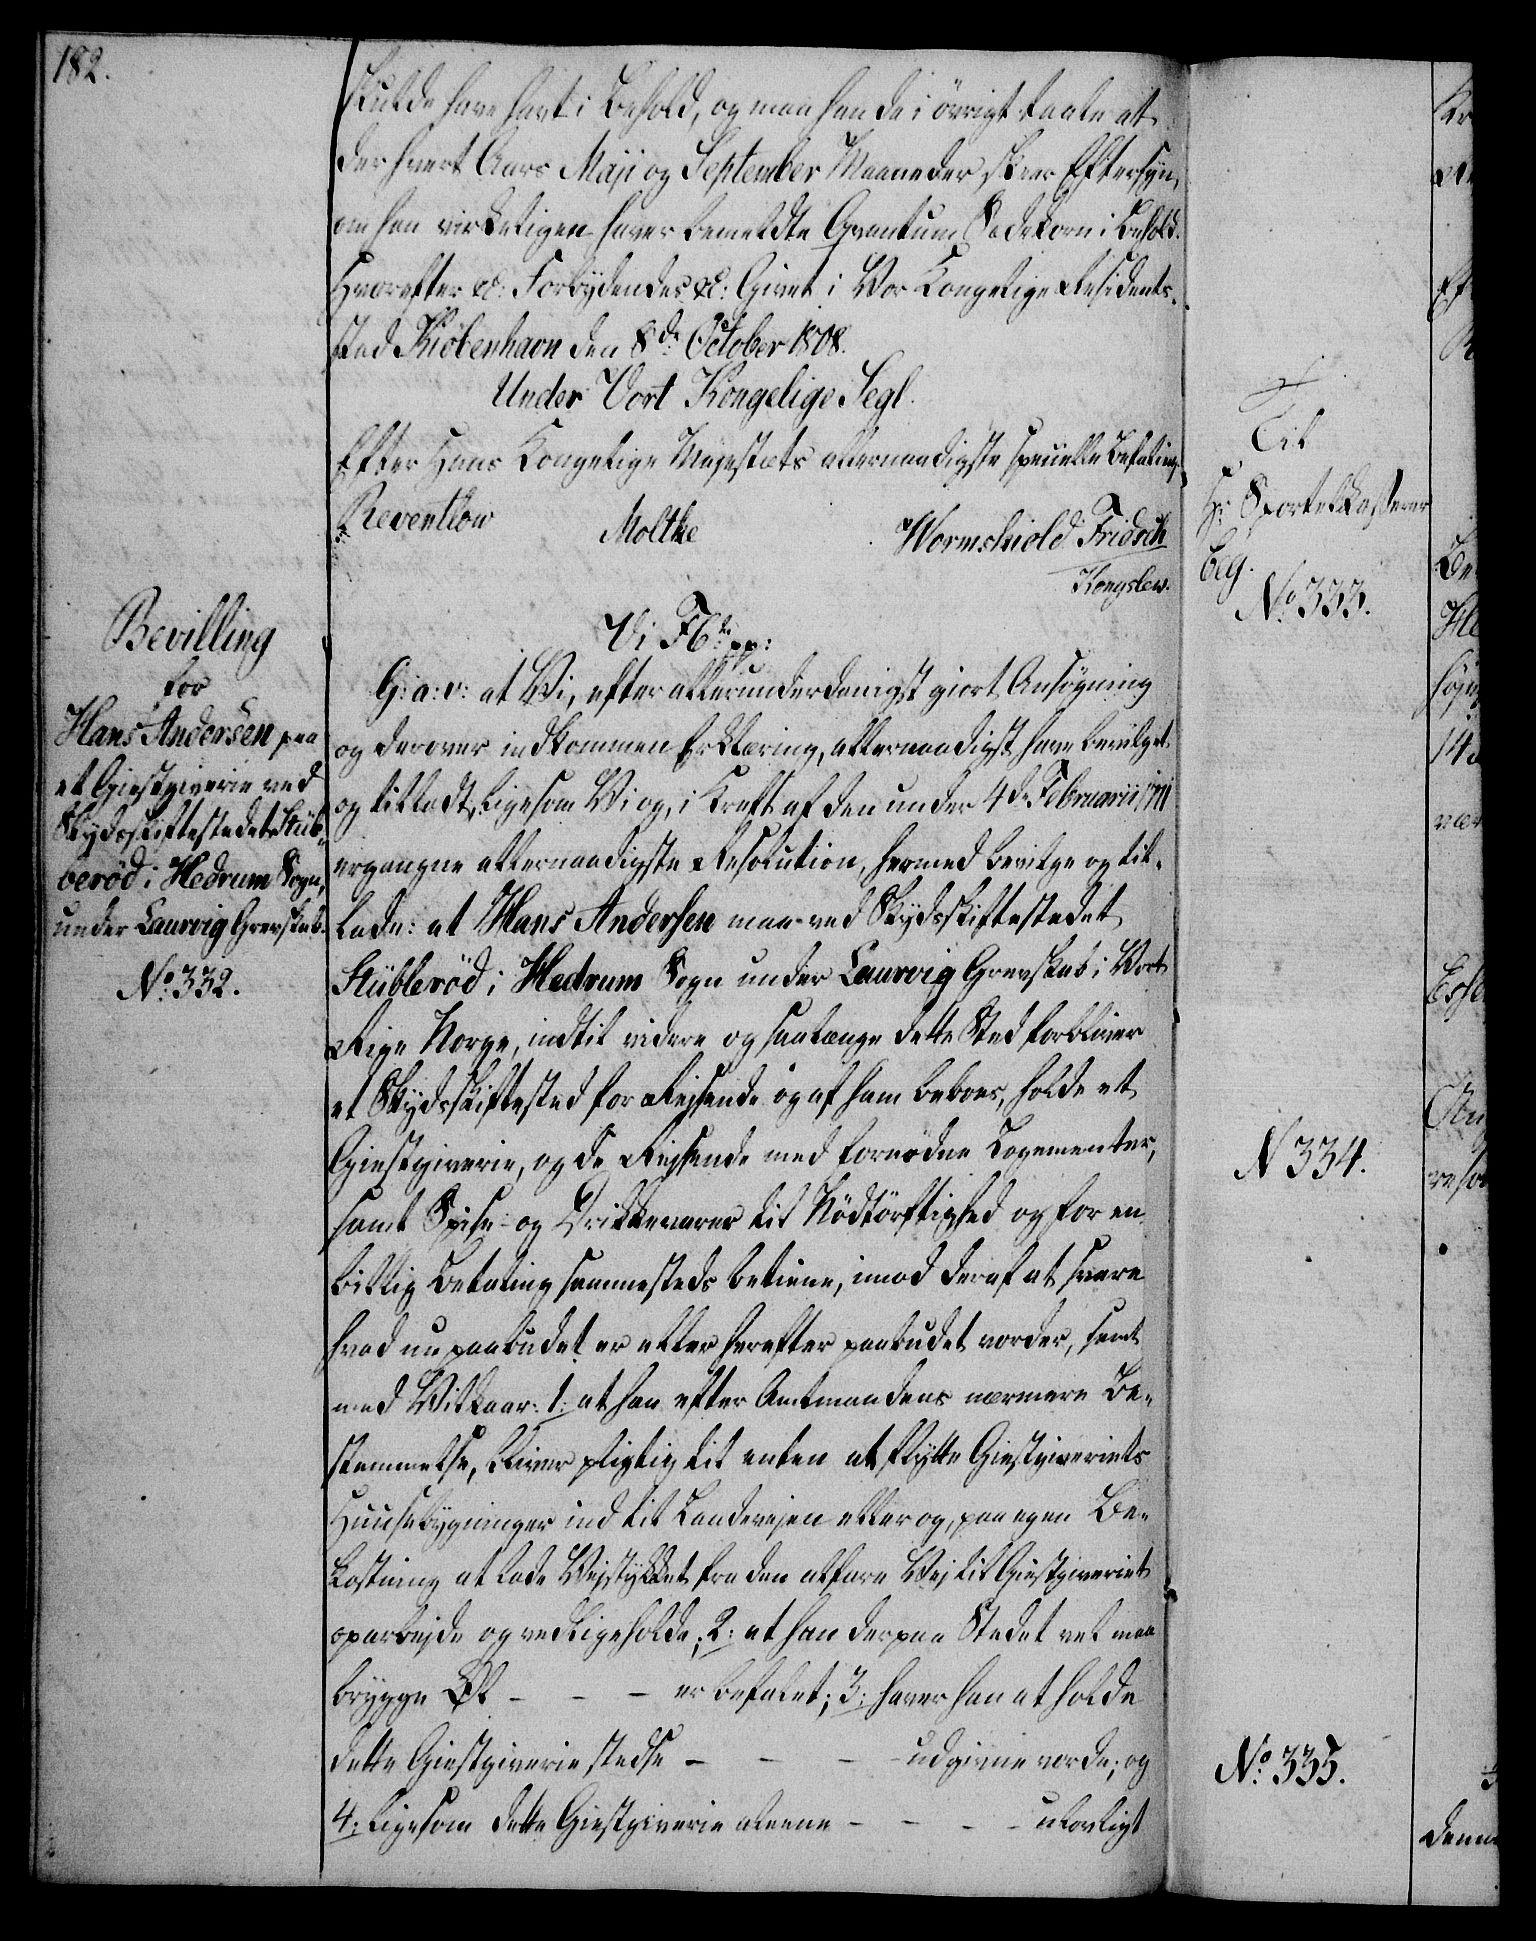 182.
skulde have havt i Behold, og maa han de i övrigt taale at
der hvert Aars Maji og September Maaneder skeer Eftersyn,
om han virkeligen haver bemeldte Qvantum Sædekorn i Behold.
Hvorefter &c: Forbydendes &c: Givet i Vor Kongelige Residents-
stad Kiöbenhavn den 8de October 1808.
Under Vort Kongelige Segl.
Efter Hans Kongelige Majestæts allernaadigste specielle Befaling
Reventlow Moltke Wormskiold Fridsch
Kongslew.
Bevilling
for
Hans Andersen paa
et Giestgiverie ved
Skydsskiftestedet Stüb-
beröd i Hedrum Sogn,
under Laurvig Grevskab.
No. 332.
Vi F6te pp:
G: a: v: at Vi, efter allerunderdanigst giort Ansögning
og derover indkommen Erklæring, allernaadigst have bevilget
og tilladt, ligesom Vi og, i Kraft af den under 4de Februarii 1711
ergangne allernaadigste Resolution, hermed bevilge og til-
lade: at Hans Andersen maa ved Skydsskiftestedet
Stübleröd i Hedrum Sogn under Laurvig Grevskab i Vort
Rige Norge, indtil videre og saalænge dette Sted forbliver
et Skydsskiftested for Reisende og af ham beboes, holde et
Giestgiverie, og de Reisende med fornödne Logementer,
samt Spise- og Drikkevarer til Nödtörftighed og for en
billig Betaling sammesteds betiene, imod deraf at svare
hvad nu paabudet er eller herefter paabudet vorder, samt
med Vilkaar: 1: at han efter Amtmandens nærmere Be-
stemmelse, bliver pligtig til enten at flytte Giestgiveriets
Huusebygninger ind til Landevejen eller og, paa egen Be-
kostning at lade Vejstykket fra den alfare Vej til Giestgiveriet
oparbejde og vedligeholde; 2: at han derpaa Stedet vel maa
brygge Öl - - - er befalet; 3: haver han at holde
dette Giestgiverie stedse - - - - udgivne vorde; og
4: ligesom dette Giestgiverie aleene - - - - ulovligt
Til
Hr Sportelkasserer
Beg.
No. 333.
N 334.
No. 335.